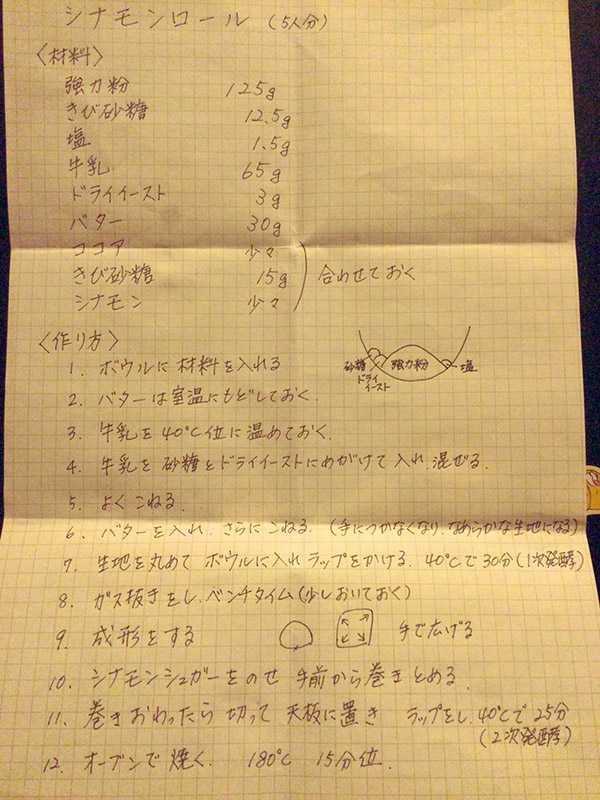 シナモンロール (5人分)
〈材料〉
強力粉 125g
きび砂糖 12.5g
塩 1.5g
牛乳 65g
ドライイースト 3g
バター 30g
ココア 少々
きび砂糖 15g 合わせておく
シナモン 少々
〈作り方〉
1. ボウルに材料を入れる
砂糖 強力粉 塩
ドライ
イースト
2. バターは室温にもどしておく.
3. 牛乳を40℃位に温めておく.
4. 牛乳を砂糖とドライイーストにめがけて入れ.混ぜる.
5. よくこねる.
6. バターを入れ.さらにこねる. (手につかなくなり.なめらかな生地になる)
7. 生地を丸めて ボウルに入れラップをかける. 40℃で30分(1次発酵)
8. ガス抜きをし.ベンチタイム(少しおいておく)
9. 成形をする 手で広げる
10. シナモンシュガーをのせ 手前から巻きとめる.
11. 巻きおわったら 切って 天板に置き ラップをし.40℃で25分
(2次発酵)
12. オーブンで焼く. 180℃ 15分位.